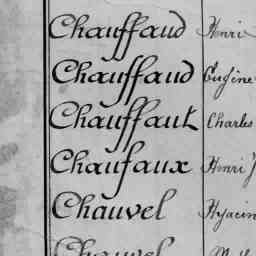 Chauffaud Henri
Chauffaud Eugène
Chauffault Charles
Chaufaux Henri J
Chauvel Hyacin
Chauvel